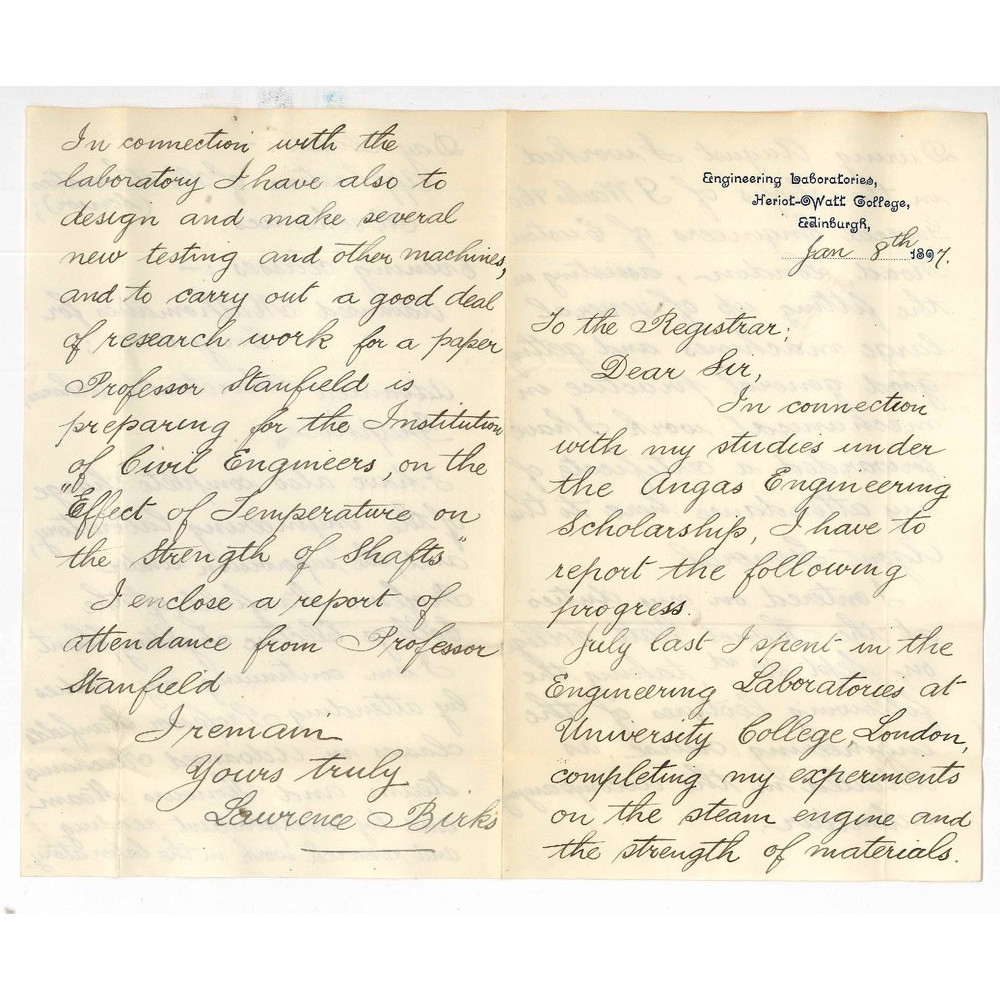 Engineering Laboratories,
Heriot-Watt College,
Edinburgh,
Jan 8th 1897.
To the Registrar;
Dear Sir,
In connection
with my studies under
the Angas Engineering
Scholarship, I have to
report the following
progress.
July last I spent in the
Engineering Laboratories at
University College, London,
completing my experiments
on the steam engine and
the strength of materials.
In connection with the
laboratory I have also to
design and make several
new testing and other machines,
and to carry out a good deal
of research work for a paper
Professor Stanfield is
preparing for the Institution
of Civil Engineers, on the
"Effect of Temperature on
the Strength of Shafts"
I enclose a report of
attendance from Professor
Stanfield
I remain
Yours truly
Lawrence Birks